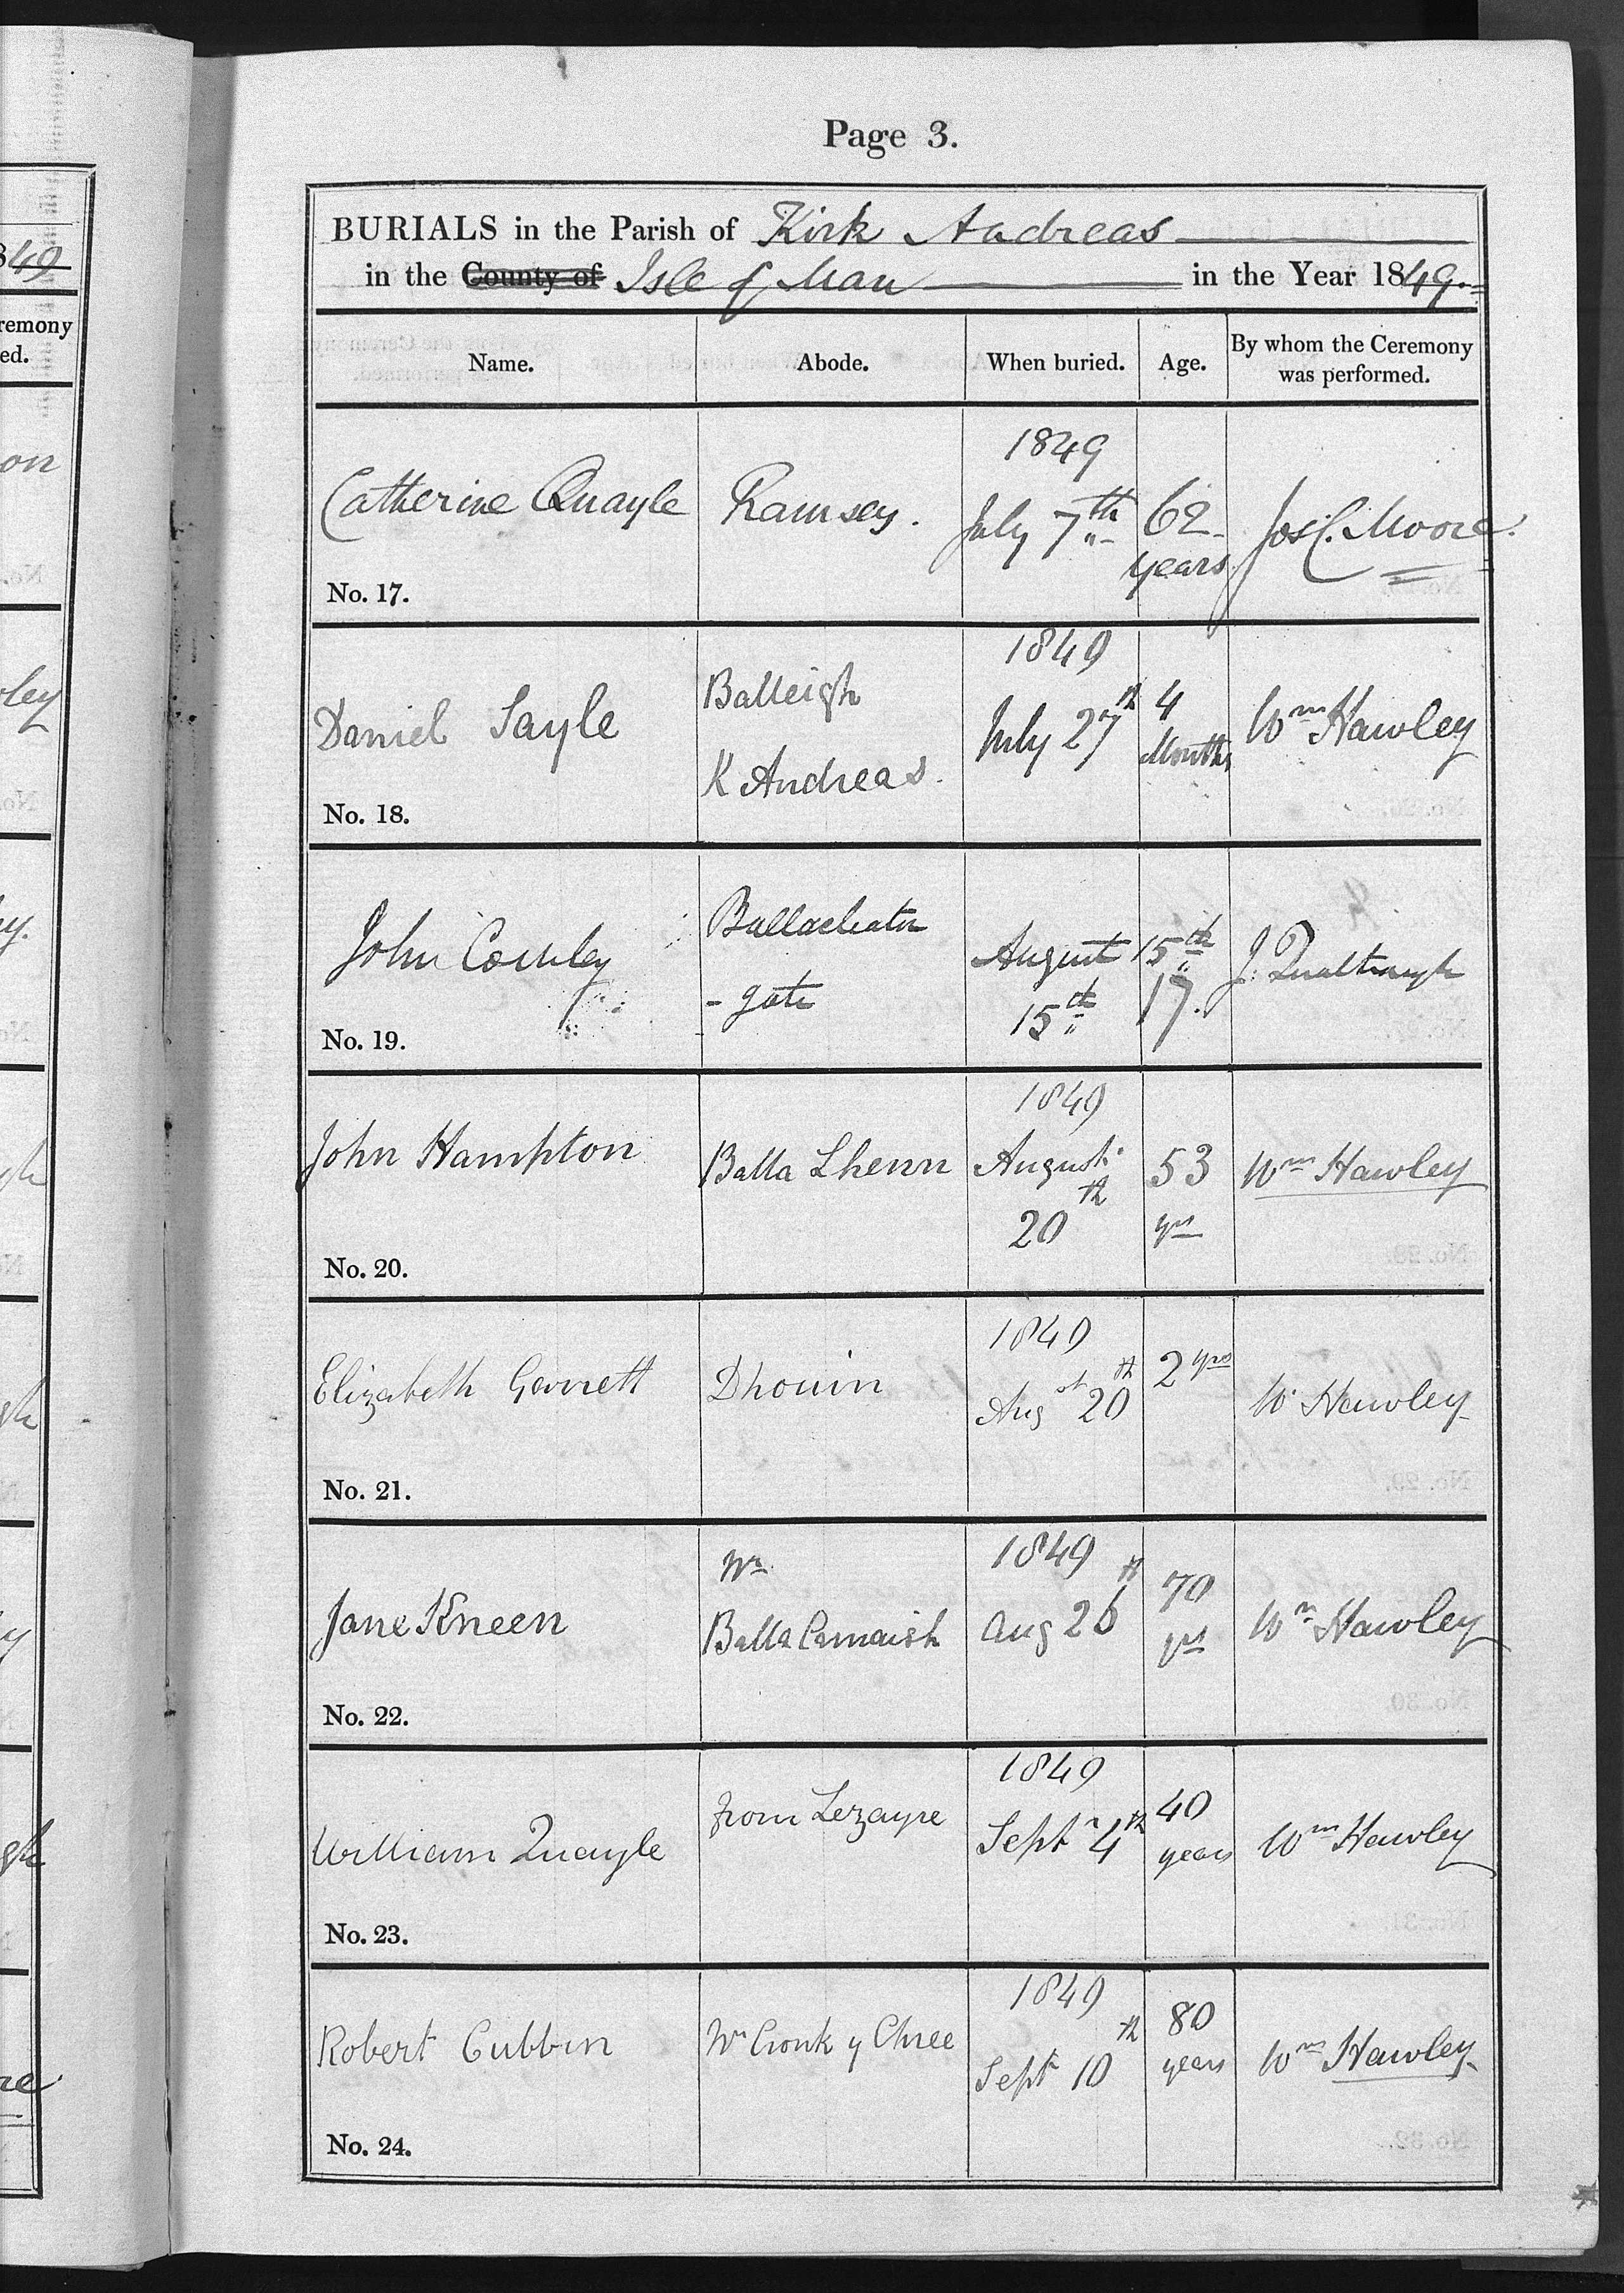 Page 3.
BURIALS in the Parish of Kirk Andreas
in the County of Isle of Man in the Year 1849.
Name. Abode. When buried. Age. By whom the Ceremony was performed.
1849
Catherine Quayle Ramsey. July 7th 62 years Jos C. Moore.
No. 17.
1849
Balleigh
Daniel Sayle July 27th 4 Months Wm Hawley
K Andreas.
No. 18.
John Cowley August 15th
- gate 15th 17. J. Qualtrough
No. 19.
1849
John Hampton Balla Lhenn August 53 Wm Hawley
20th yrs
No. 20.
1849
Elizabeth Garrett Dhouin Augst 20th 2 yrs W Hawley
No. 21.
Wm 1849
Jane Kneen Aug 26th 70 yrs Wm Hawley
No. 22.
1849
William Quayle from Lezayre Septr 4th 40 years Wm Hawley
No. 23.
1849
Robert Cubbin Wm Cronk y Chree Septr 10th 80 years Wm Hawley
No. 24.
849
remony
ed.